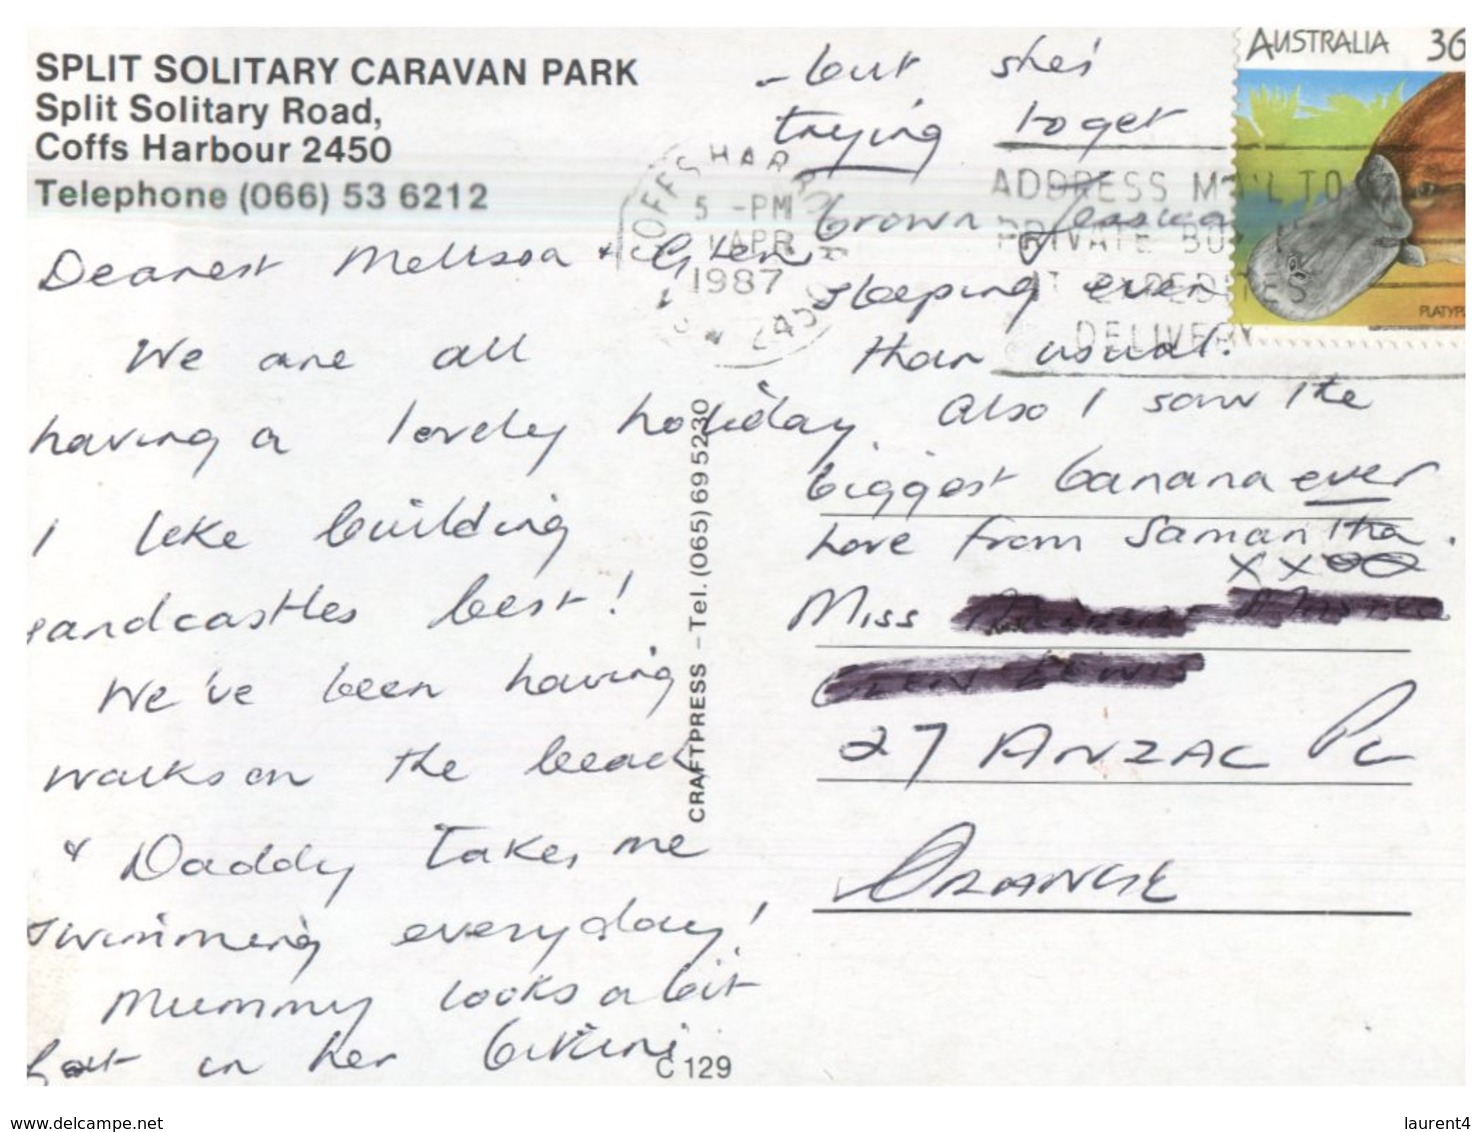 SPLIT SOLITARY CARAVAN PARK
Split Solitary Road,
Coffs Harbour 2450
Telephone (066) 53 6212
Dearest Melissa + Glen
We are all
having a lovely holiday.
I like building
sandcastles best!
We've been having
walks on the beach
& Daddy takes me
swimming everyday!
Mummy looks a bit
in her bikini
- but she's
trying to get
brown Jessica
sleeping even
than usual.
Also I saw the
biggest banana ever
Love from Samantha.
xxoo
Miss
27 ANZAC PL
ORANGE
CRAFTPRESS – Tel. (065) 69 5230
C 129
AUSTRALIA 36
PLATYP
COFFS HARBOUR
5 -PM
1 APR
1987
N.S.W 2450
ADDRESS MAIL TO
PRIVATE BOX
IT EXPEDITES
DELIVERY
www.delcampe.net
laurent4